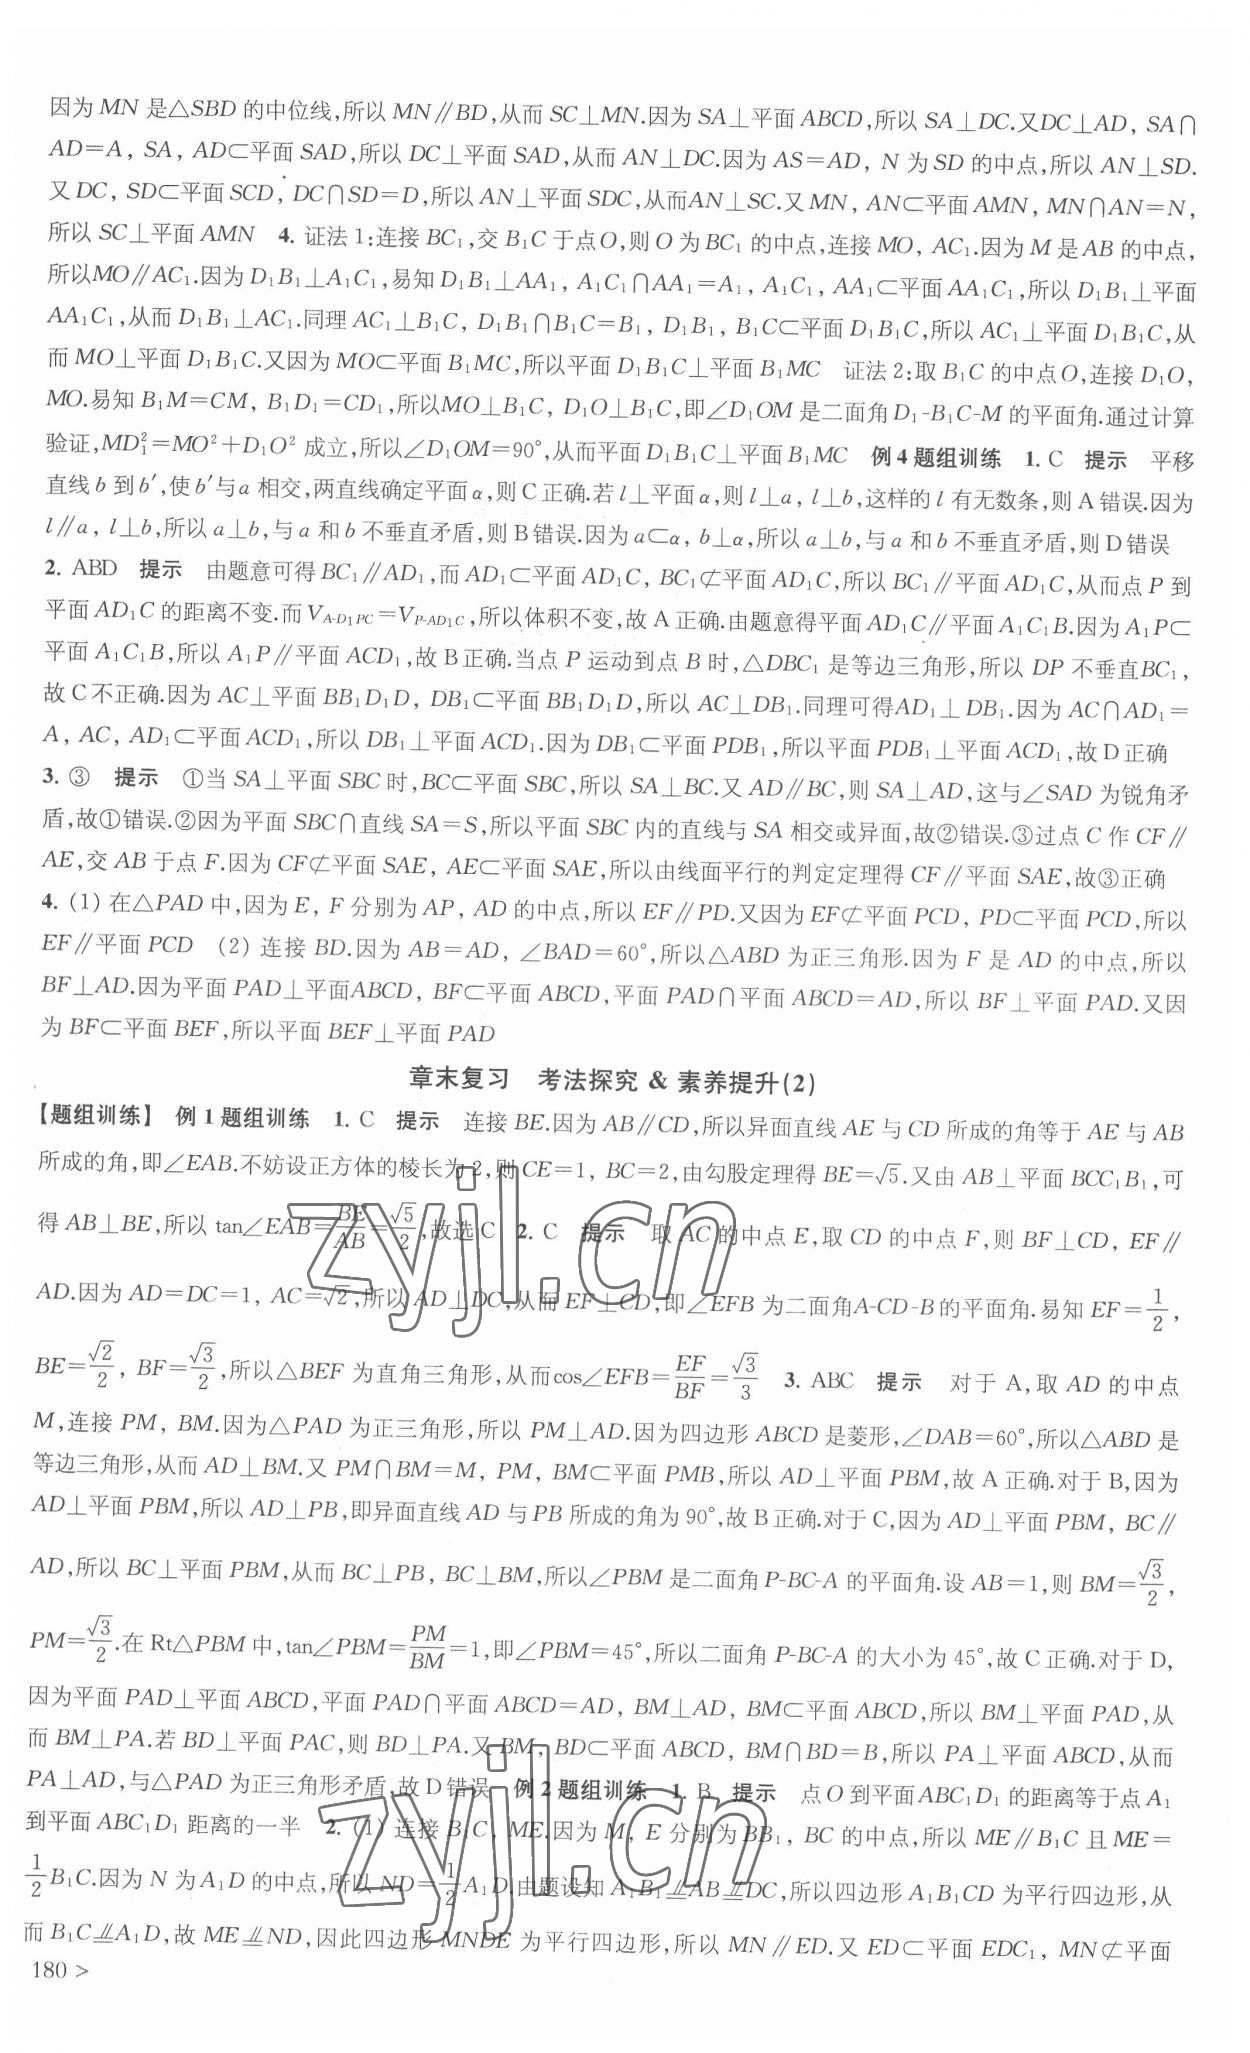 因为 MN 是△SBD 的中位线,所以 MN∥BD,从而 SC⊥MN.因为 SA⊥平面 ABCD,所以 SA⊥DC.又DC⊥AD, SA∩
AD=A, SA, AD⊂平面 SAD,所以 DC⊥平面 SAD,从而 AN⊥DC.因为 AS=AD, N 为 SD 的中点,所以 AN⊥SD.
又 DC, SD⊂平面 SCD, DC∩SD=D,所以 AN⊥平面 SDC,从而AN⊥SC.又 MN, AN⊂平面 AMN, MN∩AN=N,
所以 SC⊥平面 AMN 4. 证法 1:连接 BC₁,交 B₁C 于点O,则 O 为 BC₁ 的中点,连接 MO, AC₁.因为 M 是 AB 的中点,
所以MO∥AC₁.因为 D₁B₁⊥A₁C₁,易知 D₁B₁⊥AA₁, A₁C₁∩AA₁=A₁, A₁C₁, AA₁⊂平面 AA₁C₁,所以 D₁B₁⊥平面
AA₁C₁,从而 D₁B₁⊥AC₁.同理 AC₁⊥B₁C, D₁B₁∩B₁C=B₁, D₁B₁, B₁C⊂平面 D₁B₁C,所以 AC₁⊥平面 D₁B₁C,从
而 MO⊥平面 D₁B₁C.又因为 MO⊂平面 B₁MC,所以平面 D₁B₁C⊥平面 B₁MC 证法 2:取 B₁C 的中点 O,连接 D₁O,
MO.易知 B₁M=CM, B₁D₁=CD₁,所以MO⊥B₁C, D₁O⊥B₁C,即∠D₁OM 是二面角 D₁-B₁C-M 的平面角.通过计算
验证,MD₁²=MO²+D₁O² 成立,所以∠D₁OM=90°,从而平面 D₁B₁C⊥平面 B₁MC 例 4 题组训练 1. C 提示 平移
直线 b 到 b′,使 b′与 a 相交,两直线确定平面 α,则 C 正确.若 l⊥平面 α,则 l⊥a, l⊥b,这样的 l 有无数条,则 A 错误.因为
l∥a, l⊥b,所以 a⊥b,与 a 和 b 不垂直矛盾,则 B 错误.因为 a⊂α, b⊥α,所以 a⊥b,与 a 和 b 不垂直矛盾,则 D 错误
2. ABD 提示 由题意可得 BC₁∥AD₁,而 AD₁⊂平面 AD₁C, BC₁⊄平面 AD₁C,所以 BC₁∥平面 AD₁C,从而点 P 到
平面 AD₁C 的距离不变.而 V_{A-D₁PC}=V_{P-AD₁C},所以体积不变,故 A 正确.由题意得平面 AD₁C∥平面 A₁C₁B.因为 A₁P⊂
平面 A₁C₁B,所以 A₁P∥平面 ACD₁,故 B 正确.当点 P 运动到点 B 时,△DBC₁ 是等边三角形,所以 DP 不垂直BC₁,
故 C 不正确.因为 AC⊥平面 BB₁D₁D, DB₁⊂平面 BB₁D₁D,所以 AC⊥DB₁.同理可得AD₁⊥DB₁.因为 AC∩AD₁=
A, AC, AD₁⊂平面 ACD₁,所以 DB₁⊥平面 ACD₁.因为 DB₁⊂平面 PDB₁,所以平面 PDB₁⊥平面 ACD₁,故 D 正确
3. ③ 提示 ①当 SA⊥平面 SBC 时,BC⊂平面 SBC,所以 SA⊥BC.又 AD∥BC,则 SA⊥AD,这与∠SAD 为锐角矛
盾,故①错误.②因为平面 SBC∩直线 SA=S,所以平面 SBC 内的直线与 SA 相交或异面,故②错误.③过点 C 作 CF∥
AE,交 AB 于点 F.因为 CF⊄平面 SAE, AE⊂平面 SAE,所以由线面平行的判定定理得 CF∥平面 SAE,故③正确
4. (1) 在△PAD 中,因为 E, F 分别为 AP, AD 的中点,所以 EF∥PD.又因为 EF⊄平面 PCD, PD⊂平面 PCD,所以
EF∥平面 PCD (2) 连接 BD.因为 AB=AD, ∠BAD=60°,所以△ABD 为正三角形.因为 F 是 AD 的中点,所以
BF⊥AD.因为平面 PAD⊥平面ABCD, BF⊂平面 ABCD,平面 PAD∩平面 ABCD=AD,所以 BF⊥平面 PAD.又因
为 BF⊂平面 BEF,所以平面 BEF⊥平面 PAD
章末复习 考法探究 & 素养提升(2)
【题组训练】 例 1 题组训练 1. C 提示 连接 BE.因为 AB∥CD,所以异面直线 AE 与 CD 所成的角等于 AE 与 AB
所成的角,即∠EAB.不妨设正方体的棱长为 2,则 CE=1, BC=2,由勾股定理得 BE=√5.又由 AB⊥平面 BCC₁B₁,可
得 AB⊥BE,所以 tan∠EAB=BE/AB=√5/2,故选 C 2. C 提示 取 AC 的中点 E,取 CD 的中点 F,则 BF⊥CD, EF∥
AD.因为 AD=DC=1, AC=√2,所以 AD⊥DC,从而 EF⊥CD,即∠EFB 为二面角A-CD-B的平面角.易知 EF=1/2,
BE=√2/2, BF=√3/2,所以△BEF 为直角三角形,从而cos∠EFB=EF/BF=√3/3 3. ABC 提示 对于 A,取 AD 的中点
M,连接 PM, BM.因为△PAD 为正三角形,所以 PM⊥AD.因为四边形 ABCD 是菱形,∠DAB=60°,所以△ABD 是
等边三角形,从而 AD⊥BM.又 PM∩BM=M, PM, BM⊂平面 PMB,所以 AD⊥平面 PBM,故 A 正确.对于 B,因为
AD⊥平面 PBM,所以 AD⊥PB,即异面直线 AD 与 PB 所成的角为 90°,故 B 正确.对于 C,因为 AD⊥平面 PBM, BC∥
AD,所以 BC⊥平面 PBM,从而 BC⊥PB, BC⊥BM,所以∠PBM 是二面角 P-BC-A 的平面角.设 AB=1,则 BM=√3/2,
PM=√3/2.在 Rt△PBM 中,tan∠PBM=PM/BM=1,即∠PBM=45°,所以二面角 P-BC-A 的大小为 45°,故 C 正确.对于 D,
因为平面 PAD⊥平面 ABCD,平面 PAD∩平面 ABCD=AD, BM⊥AD, BM⊂平面 ABCD,所以 BM⊥平面 PAD,从
而 BM⊥PA.若 BD⊥平面 PAC,则 BD⊥PA.又 BM, BD⊂平面 ABCD, BM∩BD=B,所以 PA⊥平面 ABCD,从而
PA⊥AD,与△PAD 为正三角形矛盾,故 D 错误 例 2 题组训练 1. B 提示 点 O 到平面 ABC₁D₁ 的距离等于点 A₁
到平面 ABC₁D₁ 距离的一半 2. (1) 连接 B₁C, ME.因为 M, E 分别为 BB₁, BC 的中点,所以 ME∥B₁C 且 ME=
1/2 B₁C.因为 N 为 A₁D 的中点,所以 ND=1/2 A₁D.由题设知 A₁B₁⫽AB⫽DC,所以四边形 A₁B₁CD 为平行四边形,从
而 B₁C⫽A₁D,故 ME⫽ND,因此四边形 MNDE 为平行四边形,所以 MN∥ED.又 ED⊂平面 EDC₁, MN⊄平面
180 >
zyjl.cn
zyjl.cn